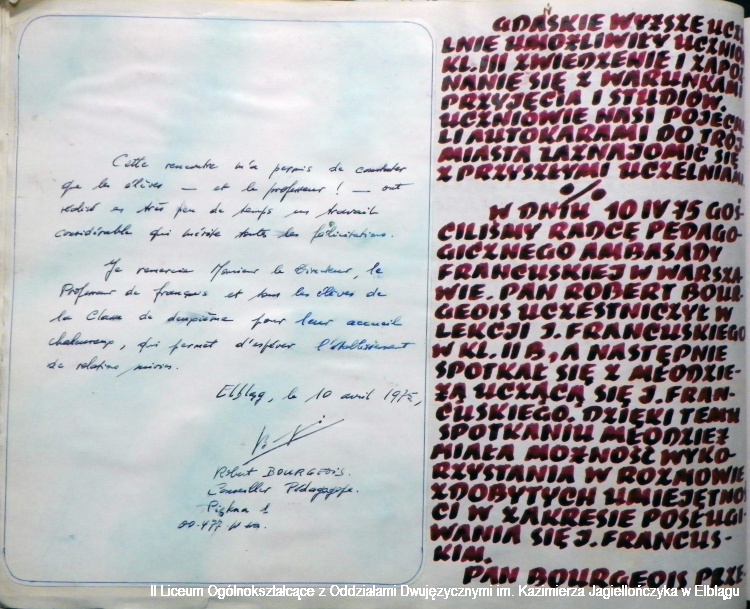 Cette rencontre m'a permis de constater
que les élèves — et le professeur ! — ont
réalisé en très peu de temps un travail
considérable qui mérite toutes les félicitations.
Je remercie Monsieur le Directeur, le
Professeur de français et tous les élèves de
la Classe de deuxième pour leur accueil
chaleureux, qui permet d'espérer l'établissement
de relations suivies.
Elbląg, le 10 avril 1975,
Robert BOURGEOIS.
Conseiller Pédagogique.
Piękna 1
00-477-W wa.
GDAŃSKIE WYŻSZE UCZE
LNIE UMOŻLIWIŁY UCZNIO
KL. III ZWIEDZENIE I ZAPOZ
NANIE SIĘ Z WARUNKAMI
PRZYJĘCIA I STUDIÓW.
UCZNIOWIE NASI POJECHA
LI AUTOKARAMI DO TRÓJ
MIASTA ZAZNAJOMIĆ SIĘ
Z PRZYSZŁYMI UCZELNIAMI
W DNIU 10 IV 75 GOŚ-
CILIŚMY RADCĘ PEDAGO-
GICZNEGO AMBASADY
FRANCUSKIEJ W WARSZA-
WIE. PAN ROBERT BOUR-
GEOIS UCZESTNICZYŁ W
LEKCJI J. FRANCUSKIEGO
W KL. II B, A NASTĘPNIE
SPOTKAŁ SIĘ Z MŁODZIE-
ŻĄ UCZĄCĄ SIĘ J. FRAN-
CUSKIEGO. DZIĘKI TEMU
SPOTKANIU MŁODZIEŻ
MIAŁA MOŻNOŚĆ WYKO-
RZYSTANIA W ROZMOWIE
ZDOBYTYCH UMIEJĘTNOŚ
CI W ZAKRESIE POSŁUGI-
WANIA SIĘ J. FRANCUS-
KIM.
PAN BOURGEOIS PRZE-
II Liceum Ogólnokształcące z Oddziałami Dwujęzycznymi im. Kazimierza Jagiellończyka w Elblągu